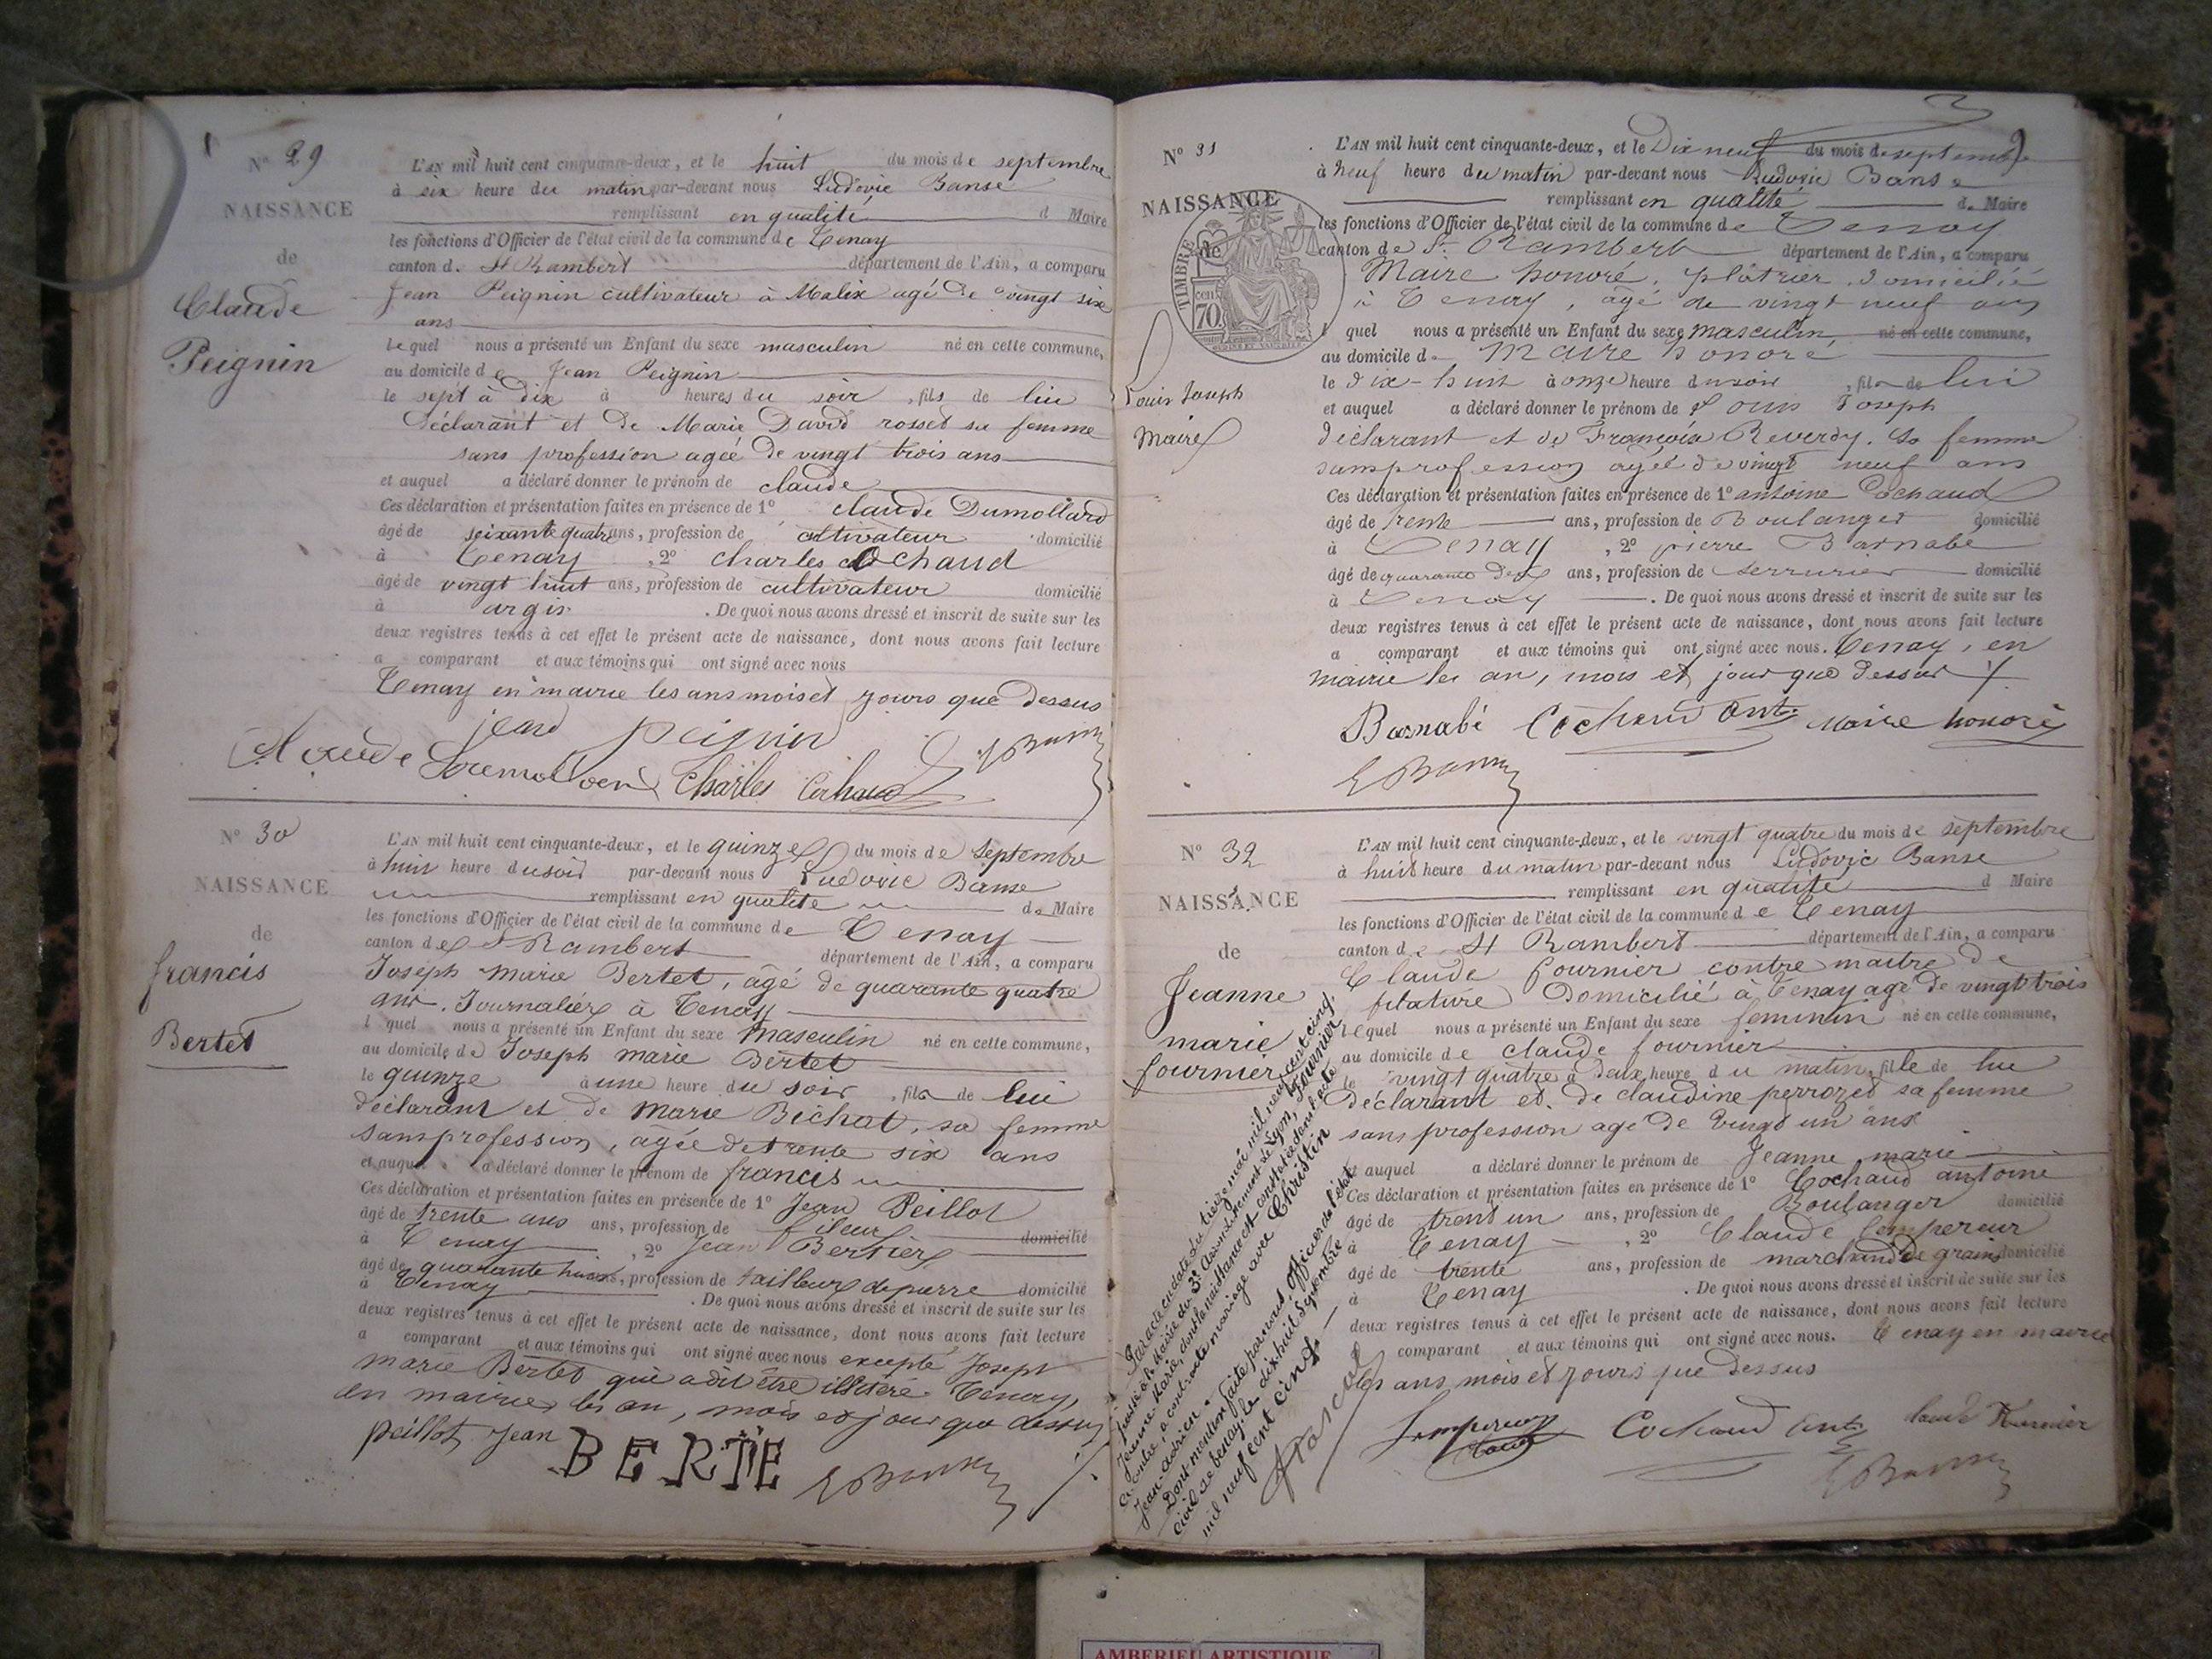 N° 29
NAISSANCE
de
Claude
Peignin
L'AN mil huit cent cinquante-deux, et le huit du mois de septembre
à six heure du matin par-devant nous Ludovic Banse
remplissant en qualité d Maire
les fonctions d'Officier de l'état civil de la commune de Tenay
canton d. St Rambert département de l'Ain, a comparu
Jean Peignin cultivateur à Malix agé de vingt six
ans
lequel nous a présenté un Enfant du sexe masculin né en cette commune,
au domicile de Jean Peignin
le sept à dix à heures du soir, fils de lui
déclarant et de Marie David rosset sa femme
sans profession agée de vingt trois ans
et auquel a déclaré donner le prénom de claude
Ces déclaration et présentation faites en présence de 1° claude Dumollard
âgé de soixante quatre ans, profession de cultivateur domicilié
à Tenay, 2° charles cochaud
âgé de vingt huit ans, profession de cultivateur domicilié
à argis. De quoi nous avons dressé et inscrit de suite sur les
deux registres tenus à cet effet le présent acte de naissance, dont nous avons fait lecture
a comparant et aux témoins qui ont signé avec nous
Tenay en mairie les ans mois et jours que dessus
jean peignin
Charles Cochaud
N° 30
NAISSANCE
de
francis
Bertet
L'AN mil huit cent cinquante-deux, et le quinze du mois de Septembre
à huit heure du soir par-devant nous Ludovic Banse
remplissant en qualité de Maire
les fonctions d'Officier de l'état civil de la commune de Tenay
canton de St Rambert département de l'Ain, a comparu
Joseph marie Bertet, âgé de quarante quatre
ans. Journalier à Tenay
l quel nous a présenté un Enfant du sexe masculin né en cette commune,
au domicile de Joseph marie Bertet
le quinze à une heure du soir, fils de lui
déclarant et de Marie Bichat, sa femme
sans profession, âgée de trente six ans
et auquel a déclaré donner le prénom de francis
Ces déclaration et présentation faites en présence de 1° Jean Peillot
âgé de trente ans ans, profession de fileur domicilié
à Tenay, 2° Jean Bertier
âgé de quarante huit ans, profession de tailleur de pierre domicilié
à Tenay. De quoi nous avons dressé et inscrit de suite sur les
deux registres tenus à cet effet le présent acte de naissance, dont nous avons fait lecture
a comparant et aux témoins qui ont signé avec nous excepté Joseph
marie Bertet qui a dit être illitéré. Tenay,
en mairie les an, mois et jour que dessus
peillot jean BERTIE
N° 31
NAISSANCE
de
TIMBRE
70
Louis Joseph
Maire
L'AN mil huit cent cinquante-deux, et le Dix neuf du mois de septembre
à neuf heure du matin par-devant nous Ludovic Banse
remplissant en qualité de Maire
les fonctions d'Officier de l'état civil de la commune de Tenay
canton de St Rambert département de l'Ain, a comparu
Maire honoré, plâtrier, domicilié
à Tenay, âgé de vingt neuf ans
l quel nous a présenté un Enfant du sexe masculin, né en cette commune,
au domicile de Maire honoré
le dix-huit à onze heure du soir, fils de lui
et auquel a déclaré donner le prénom de Louis Joseph
déclarant et de Françoise Reverdy. Sa femme
sans profession agée de vingt neuf ans
Ces déclaration et présentation faites en présence de 1° antoine Cochaud
âgé de trente ans, profession de Boulanger domicilié
à Tenay, 2° pierre Barnabé
âgé de quarante deux ans, profession de serrurier domicilié
à Tenay. De quoi nous avons dressé et inscrit de suite sur les
deux registres tenus à cet effet le présent acte de naissance, dont nous avons fait lecture
a comparant et aux témoins qui ont signé avec nous. Tenay, en
mairie les an, mois et jour que dessus
Barnabé Cochaud Ant. Maire honoré
N° 32
NAISSANCE
de
Jeanne
marie
fournier
L'AN mil huit cent cinquante-deux, et le vingt quatre du mois de septembre
à huit heure du matin par-devant nous Ludovic Banse
remplissant en qualité d Maire
les fonctions d'Officier de l'état civil de la commune de Tenay
canton de St Rambert département de l'Ain, a comparu
Claude fournier contre maitre de
filature Domicilié à Tenay age de vingt trois
lequel nous a présenté un Enfant du sexe feminin né en cette commune,
au domicile de claude fournier
le vingt quatre à deux heure du matin, fille de lui
déclarant et de claudine perrozet sa femme
sans profession age de vingt un ans
et auquel a déclaré donner le prénom de Jeanne marie
Ces déclaration et présentation faites en présence de 1° Cochaud antoine
âgé de trent un ans, profession de Boulanger domicilié
à Tenay, 2° Claude Lempereur
âgé de trente ans, profession de marchand de grains domicilié
à Tenay. De quoi nous avons dressé et inscrit de suite sur les
deux registres tenus à cet effet le présent acte de naissance, dont nous avons fait lecture
comparant et aux témoins qui ont signé avec nous. Tenay en mairie
les ans mois et jours que dessus
Cochaud Ant.
Par acte en date du treize mai mil neuf cent cinq,
passé à la Mairie du 3e Arrondissement de Lyon, Fournier
Jeanne Marie, dont la naissance est constatée dans l'acte
ci contre, a contracté mariage avec Christin
Jean-Adrien.
Dont mention faite par nous officier de l'état
civil de Tenay, le dix huit Septembre
mil neuf cent cinq.
Pascal
AMBERIEU ARTISTIQUE